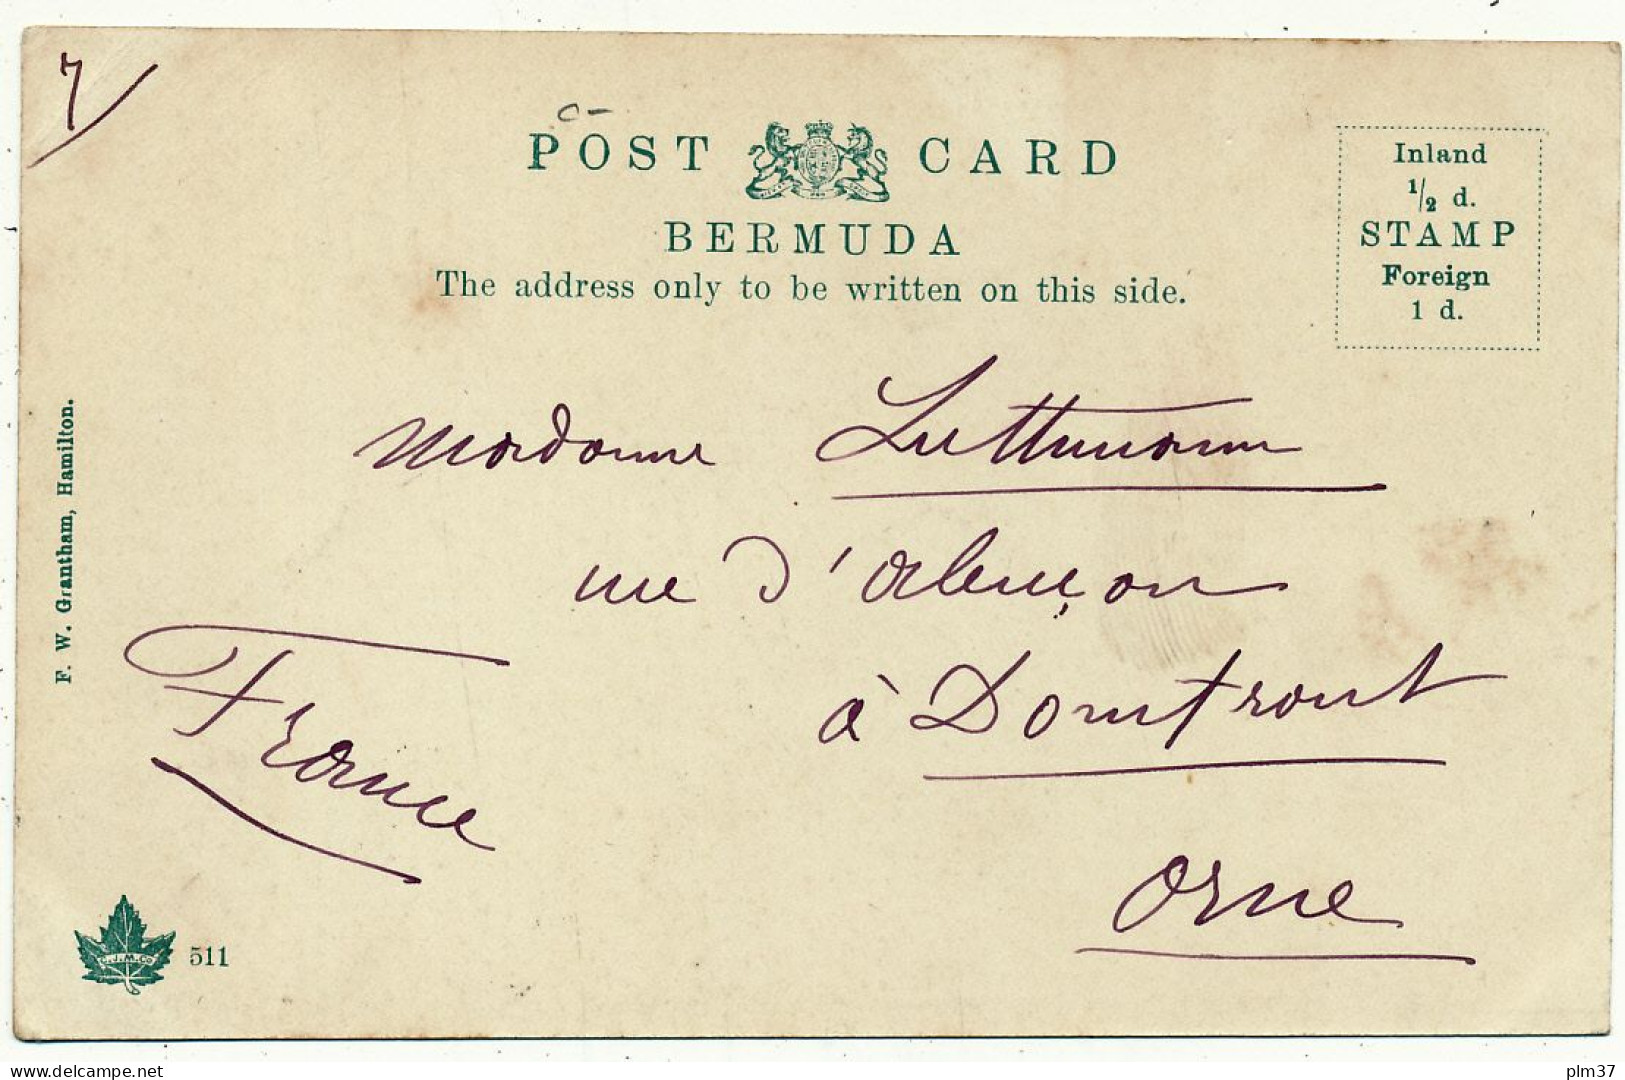 7
POST CARD
BERMUDA
The address only to be written on this side.
Inland
1/2 d.
STAMP
Foreign
1 d.
F. W. Grantham, Hamilton.
Madame Luttmann
rue d'alençon
à Domfront
Orne
France
C.J.M.Co
511
delcampe.net
plm37